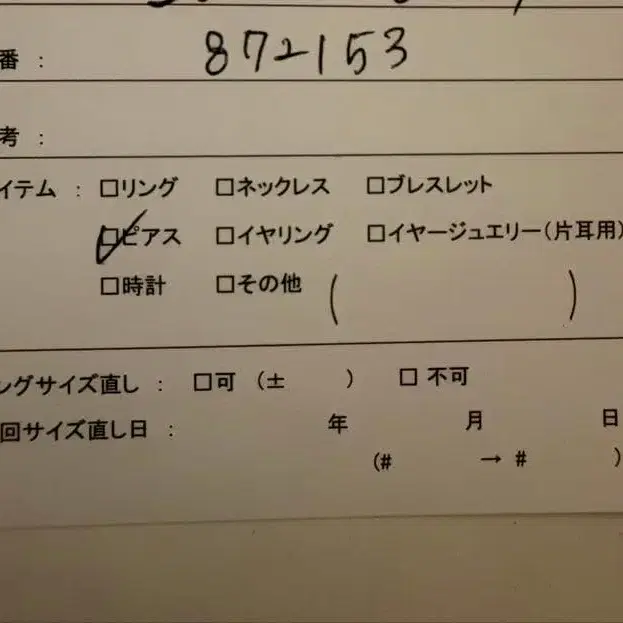 番 : 872153
考 :
イテム : □リング □ネックレス □ブレスレット
☑ピアス □イヤリング □イヤージュエリー(片耳用)
□時計 □その他 ( )
ングサイズ直し : □可 (± ) □ 不可
回サイズ直し日 : 年 月 日
(# → # )